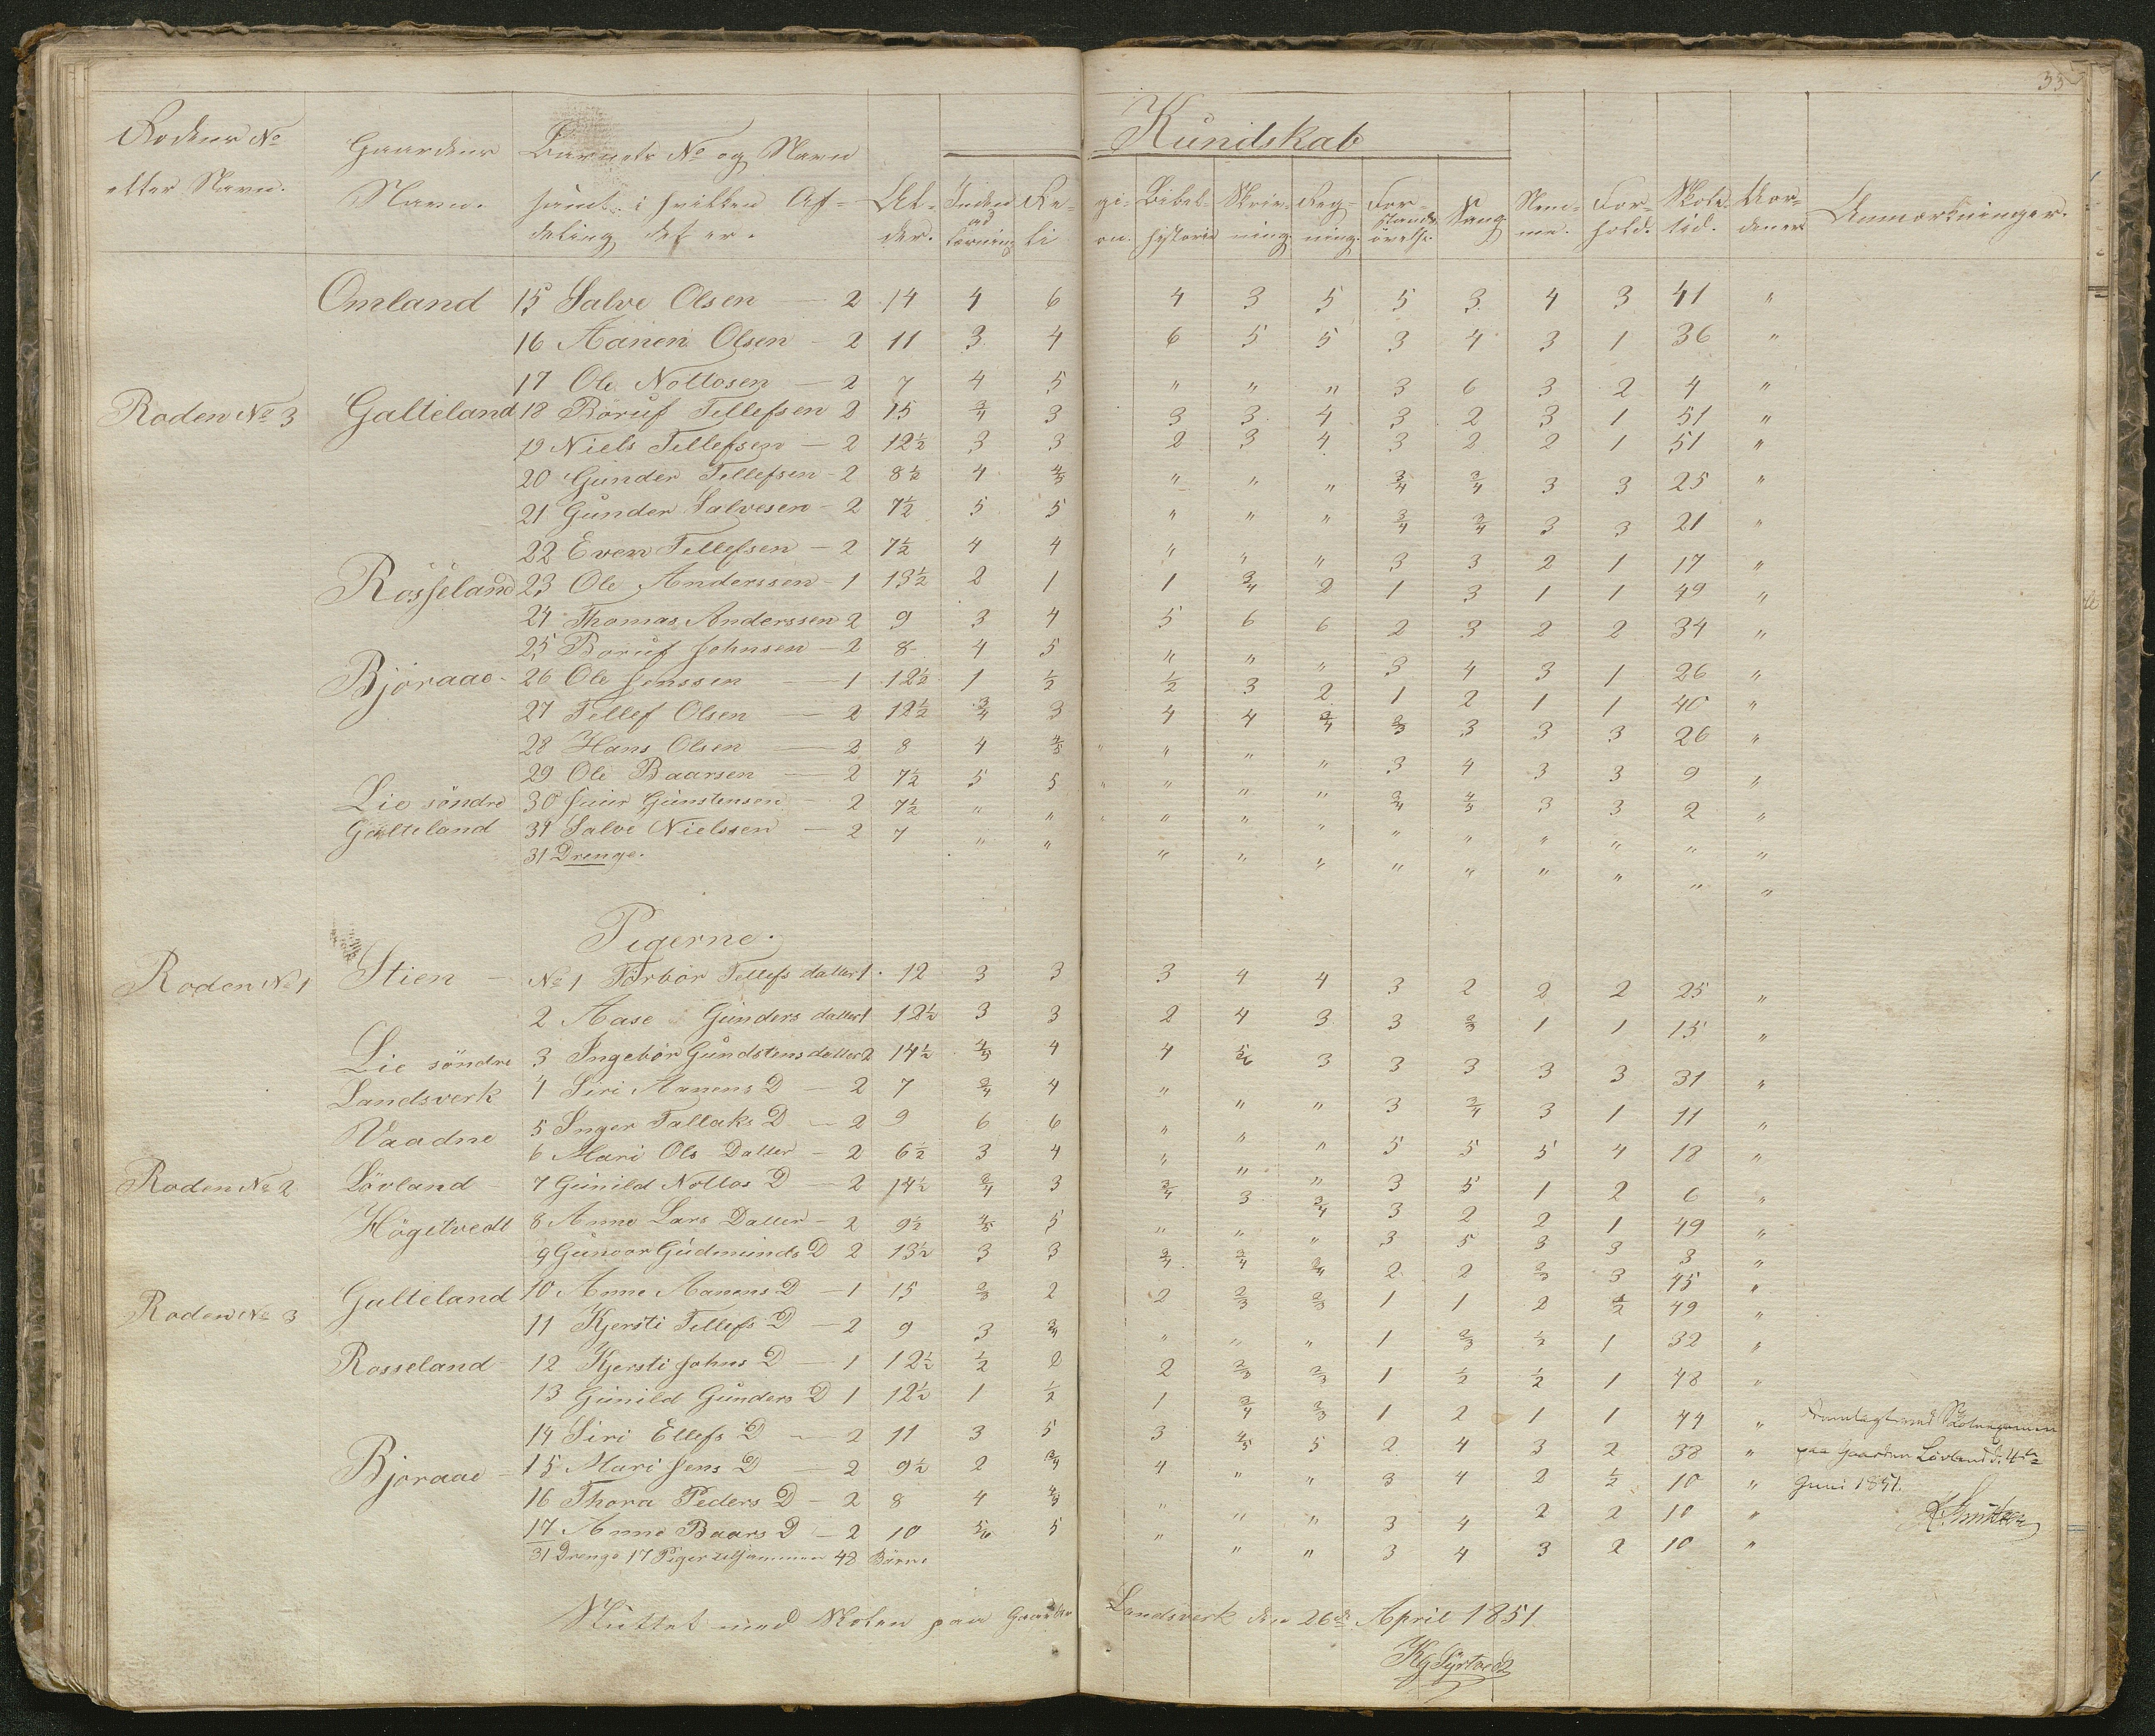 33
Rodens No
etter Navn.
Gaardens
Navn.
Barnets No og Navn
samt i hvilken Af=
deling det er.
Al-
der.
Inden
ad
læsning
Re-
li
Kundskab
gi-
on.
Bibel-
historie
Skriv-
ning
Reg-
ning.
For-
stands
øvelse.
Sang
Nem-
me.
For-
hold.
Skole-
tid.
Anmærkninger.
Omland 15 Salve Olsen 2 14 4 6 4 3 5 5 3 4 3 41 "
16 Aanen Olsen - 2 11 3 4 6 5 5 3 4 3 1 36 "
17 Ole Nottosen - 2 7 4 5 " " " 3 6 3 2 4 "
Roden No 3 Galteland 18 Böruf Tellefsen 2 15 3/4 3 3 3 4 3 2 3 1 51 "
19 Niels Tellefsen - 2 12½ 3 3 2 3 4 3 2 2 1 51 "
20 Gunder Tellefsen - 2 8½ 4 4/5 " " " 3/4 3/4 3 3 25 "
21 Gunder Salvesen - 2 7½ 5 5 " " " 3/4 3/4 3 3 21 "
22 Even Tellefsen - 2 7½ 4 4 " " " 3 3 2 1 17 "
Rosseland 23 Ole Anderssen - 1 13½ 2 1 1 3/4 2 1 3 1 1 49 "
24 Thomas Anderssen 2 9 3 4 5 6 6 2 3 2 2 34 "
25 Boruf Johnsen - 2 8 4 5 " " " 3 4 3 1 26 "
Björaae - 26 Ole Jenssen - 1 12½ 1 ½ ½ 3 2 1 2 1 1 40 "
27 Tellef Olsen - 2 12½ 3/4 3 4 4 3/4 2/3 3 3 3 26 "
28 Hans Olsen - 2 8 4 4/5 " " " " 3 4 3 3 9 "
29 Ole Baarsen - 2 7½ 5 5 " " " " 3/4 4/5 3 3 2 "
Lie söndre 30 Gunstensen - 2 7½ " " " " " " " " " " " "
Galteland 31 Salve Nielssen - 2 7 " " " " " " " " " " "
31 Drenge.
Pigerne.
Roden No 1 Stien - No 1 Torbör Tellefs datter 1 12 3 3 3 4 4 3 2 2 2 25 "
2 Aase Gunders datter 1 12½ 3 3 2 4 3 3 2/3 1 1 15 "
Lie söndre 3 Ingebör Gundstens datter 2 14½ 4/5 4 4 5/6 3 3 3 3 3 31 "
Landsverk 4 Siri Aanens D - 2 7 3/4 4 " " " 3 3/4 3 1 11 "
Vaadne 5 Inger Tallaks D - 2 9 6 6 " " " 5 5 5 4 18 "
6 Mari Ols Datter - 2 6½ 3 4 " " " 3 5 1 2 6 "
Roden No 2 Lövland - 7 Gunild Nottos D - 2 14½ 3/4 3 3/4 3 3/4 3 2 2 1 49 "
Högetvedt 8 Anne Lars Datter - 2 9½ 4/5 5 " " " 3 5 3 3 3 "
9 Gunvor Gudmunds D 2 13½ 3 3 3/4 3/4 3/4 2 2 2/3 3 45 "
Roden No 3 Galteland 10 Anne Aanens D - 1 15 2/3 2 2 2/3 2/3 1 1 2 ½ 49 "
11 Kjersti Tellefs D - 2 9 3 3/4 " " " 1 2/3 ½ 1 32 "
Rosseland - 12 Kjersti Johns D - 1 12½ ½ 2 2 2/3 2/3 1 ½ ½ 1 48 "
13 Gunild Gunders D 1 12½ 1 ½ 1 3/4 2/3 1 2 1 1 44 "
14 Siri Ellefs D - 2 11 3 5 3 4/5 5 2 4 3 2 38 "
Bjoraae - 15 Mari Jens D - 2 9½ 2 3/4 4 " " 3 4 2 ½ 10 "
16 Thora Peders D - 2 8 4 4/5 " " " 3 4 2 2 10 "
17 Anne Baars D - 2 10 5/6 5 " " " 3 4 3 2 10 "
31 Drenge 17 Piger tilsammen 48 Börn.
Fremlagt ved Skoleexamen
paa Gaarden Lövland d. 4de
Juni 1851.
Sluttet med Skolen paa Gaarden Landsverk den 26de April 1851.